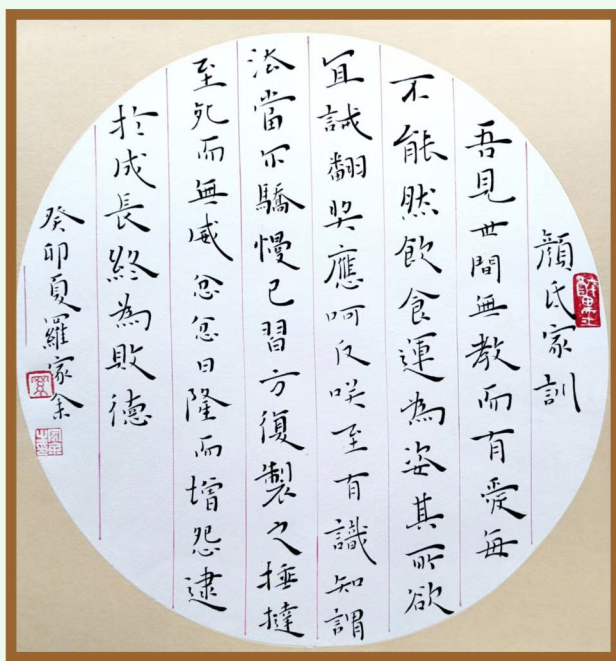 顏氏家訓
吾見世間無教而有愛每
不能然飲食運為姿其所欲
宜誡翻奖應呵反咲至有識知謂
法當尔驕慢已習方復製之捶撻
至死而無威忿忿日隆而增怨逮
扵成長終為敗德
癸卯夏羅家余